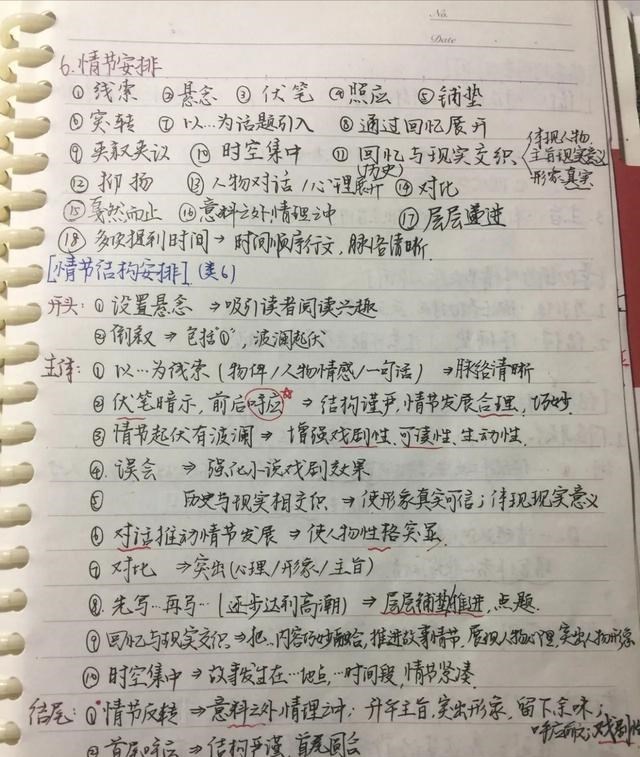 No.
Date
6.情节安排
①线索 ②悬念 ③伏笔 ④照应 ⑤铺垫
⑥突转 ⑦以…为话题引入 ⑧通过回忆展开
⑨夹叙夹议 ⑩时空集中 ⑪回忆与现实交织(历史) 体现人物.主旨现实意义 形象真实
⑫抑扬 ⑬人物对话/心理展开 ⑭对比
⑮戛然而止 ⑯意料之外情理之中 ⑰层层递进
⑱多次提到时间→时间顺序行文,脉络清晰.
[情节结构安排](类6)
开头:①设置悬念→吸引读者阅读兴趣
②倒叙→包括"①",波澜起伏
主体:①以…为线索(物件/人物情感/一句话)→脉络清晰
②伏笔暗示,前后呼应☆→结构谨严,情节发展合理,巧妙.
③情节起伏有波澜→增强戏剧性.可读性.生动性.
④.误会→强化小说戏剧效果
⑤ 历史与现实相交织→使形象真实可信;体现现实意义
⑥对话推动情节发展→使人物性格突显.
⑦对比→突出(心理/形象/主旨)
⑧.先写…再写…(逐步达到高潮)→层层铺垫推进,点题.
⑨回忆与现实交织→把…内容巧妙融合,推进故事情节,展现人物心理,突出人物形象
⑩时空集中→故事发生在…地点,…时间段,情节紧凑.
结尾:①情节反转→意料之外情理之中;升华主旨,突出形象,留下余味;
呼应前文;戏剧性
②首尾呼应→结构严谨,首尾圆合